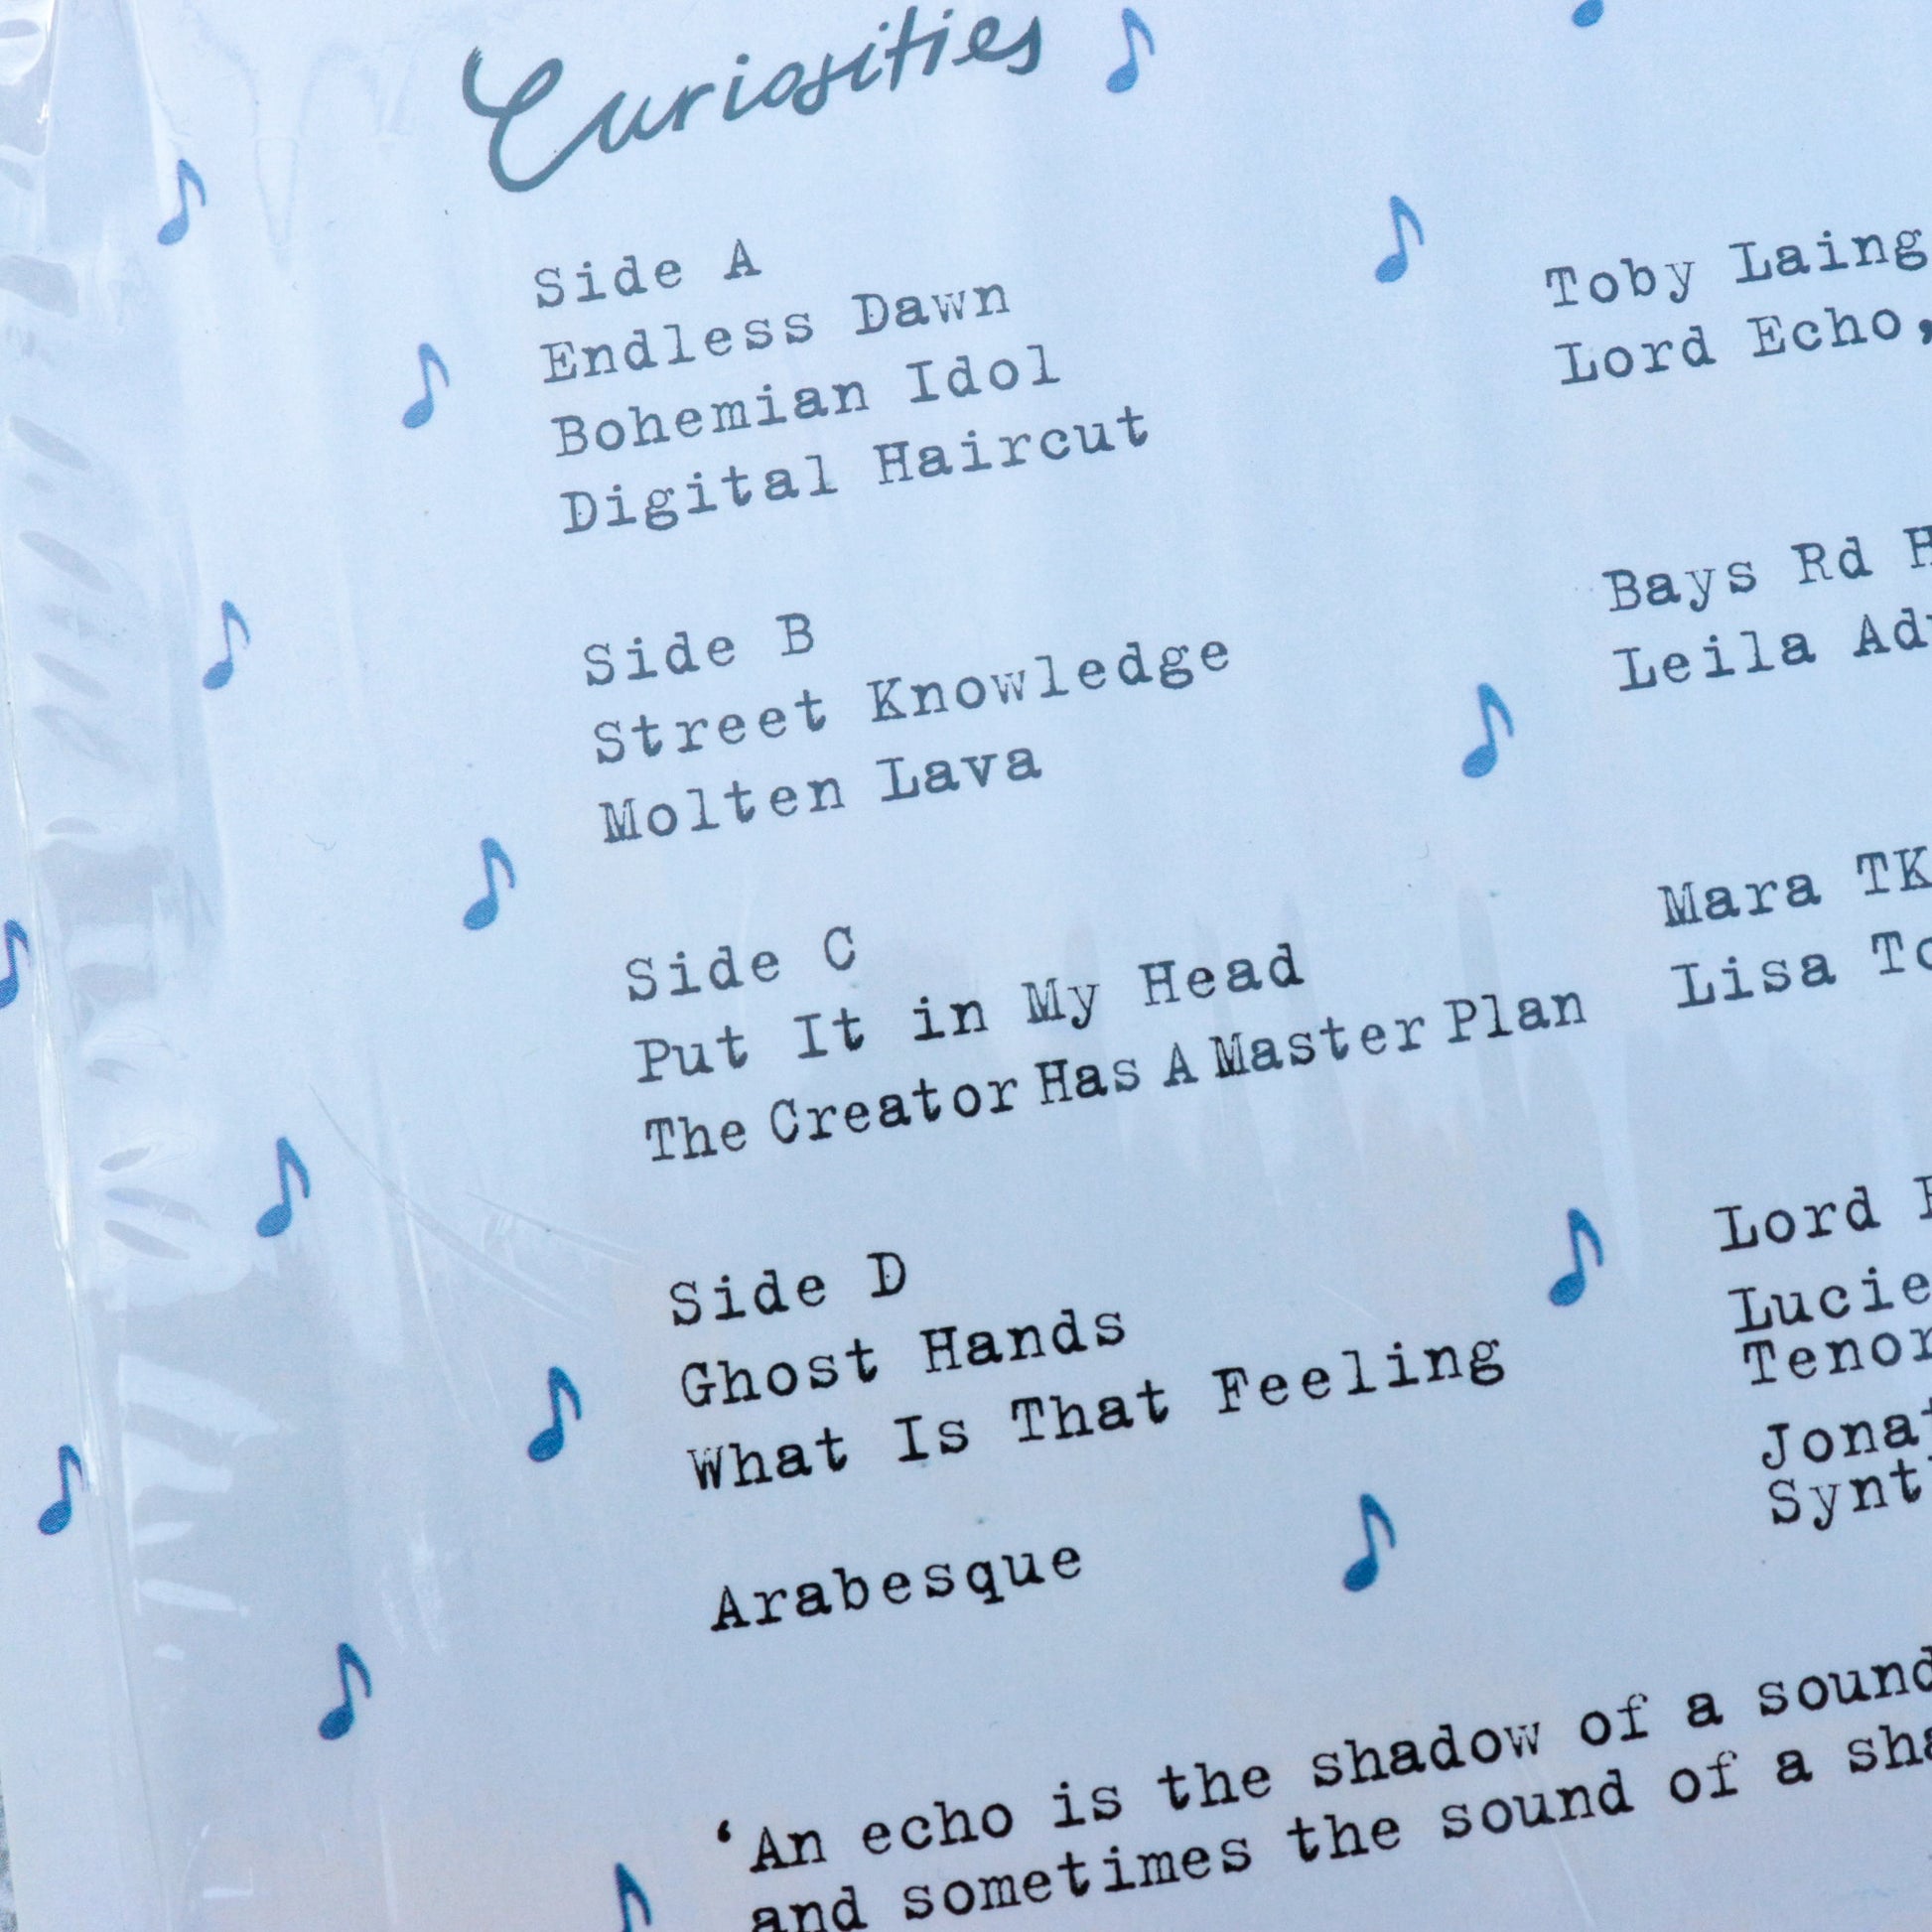 Curiosities
Side A
Endless Dawn
Bohemian Idol
Digital Haircut
Side B
Street Knowledge
Molten Lava
Side C
Put It in My Head
The Creator Has A Master Plan
Side D
Ghost Hands
What Is That Feeling
Arabesque
Toby Laing
Lord Echo,
Bays Rd
Leila
Mara TK
Lisa
Lord
'An echo is the shadow of a sound
and sometimes the sound of a